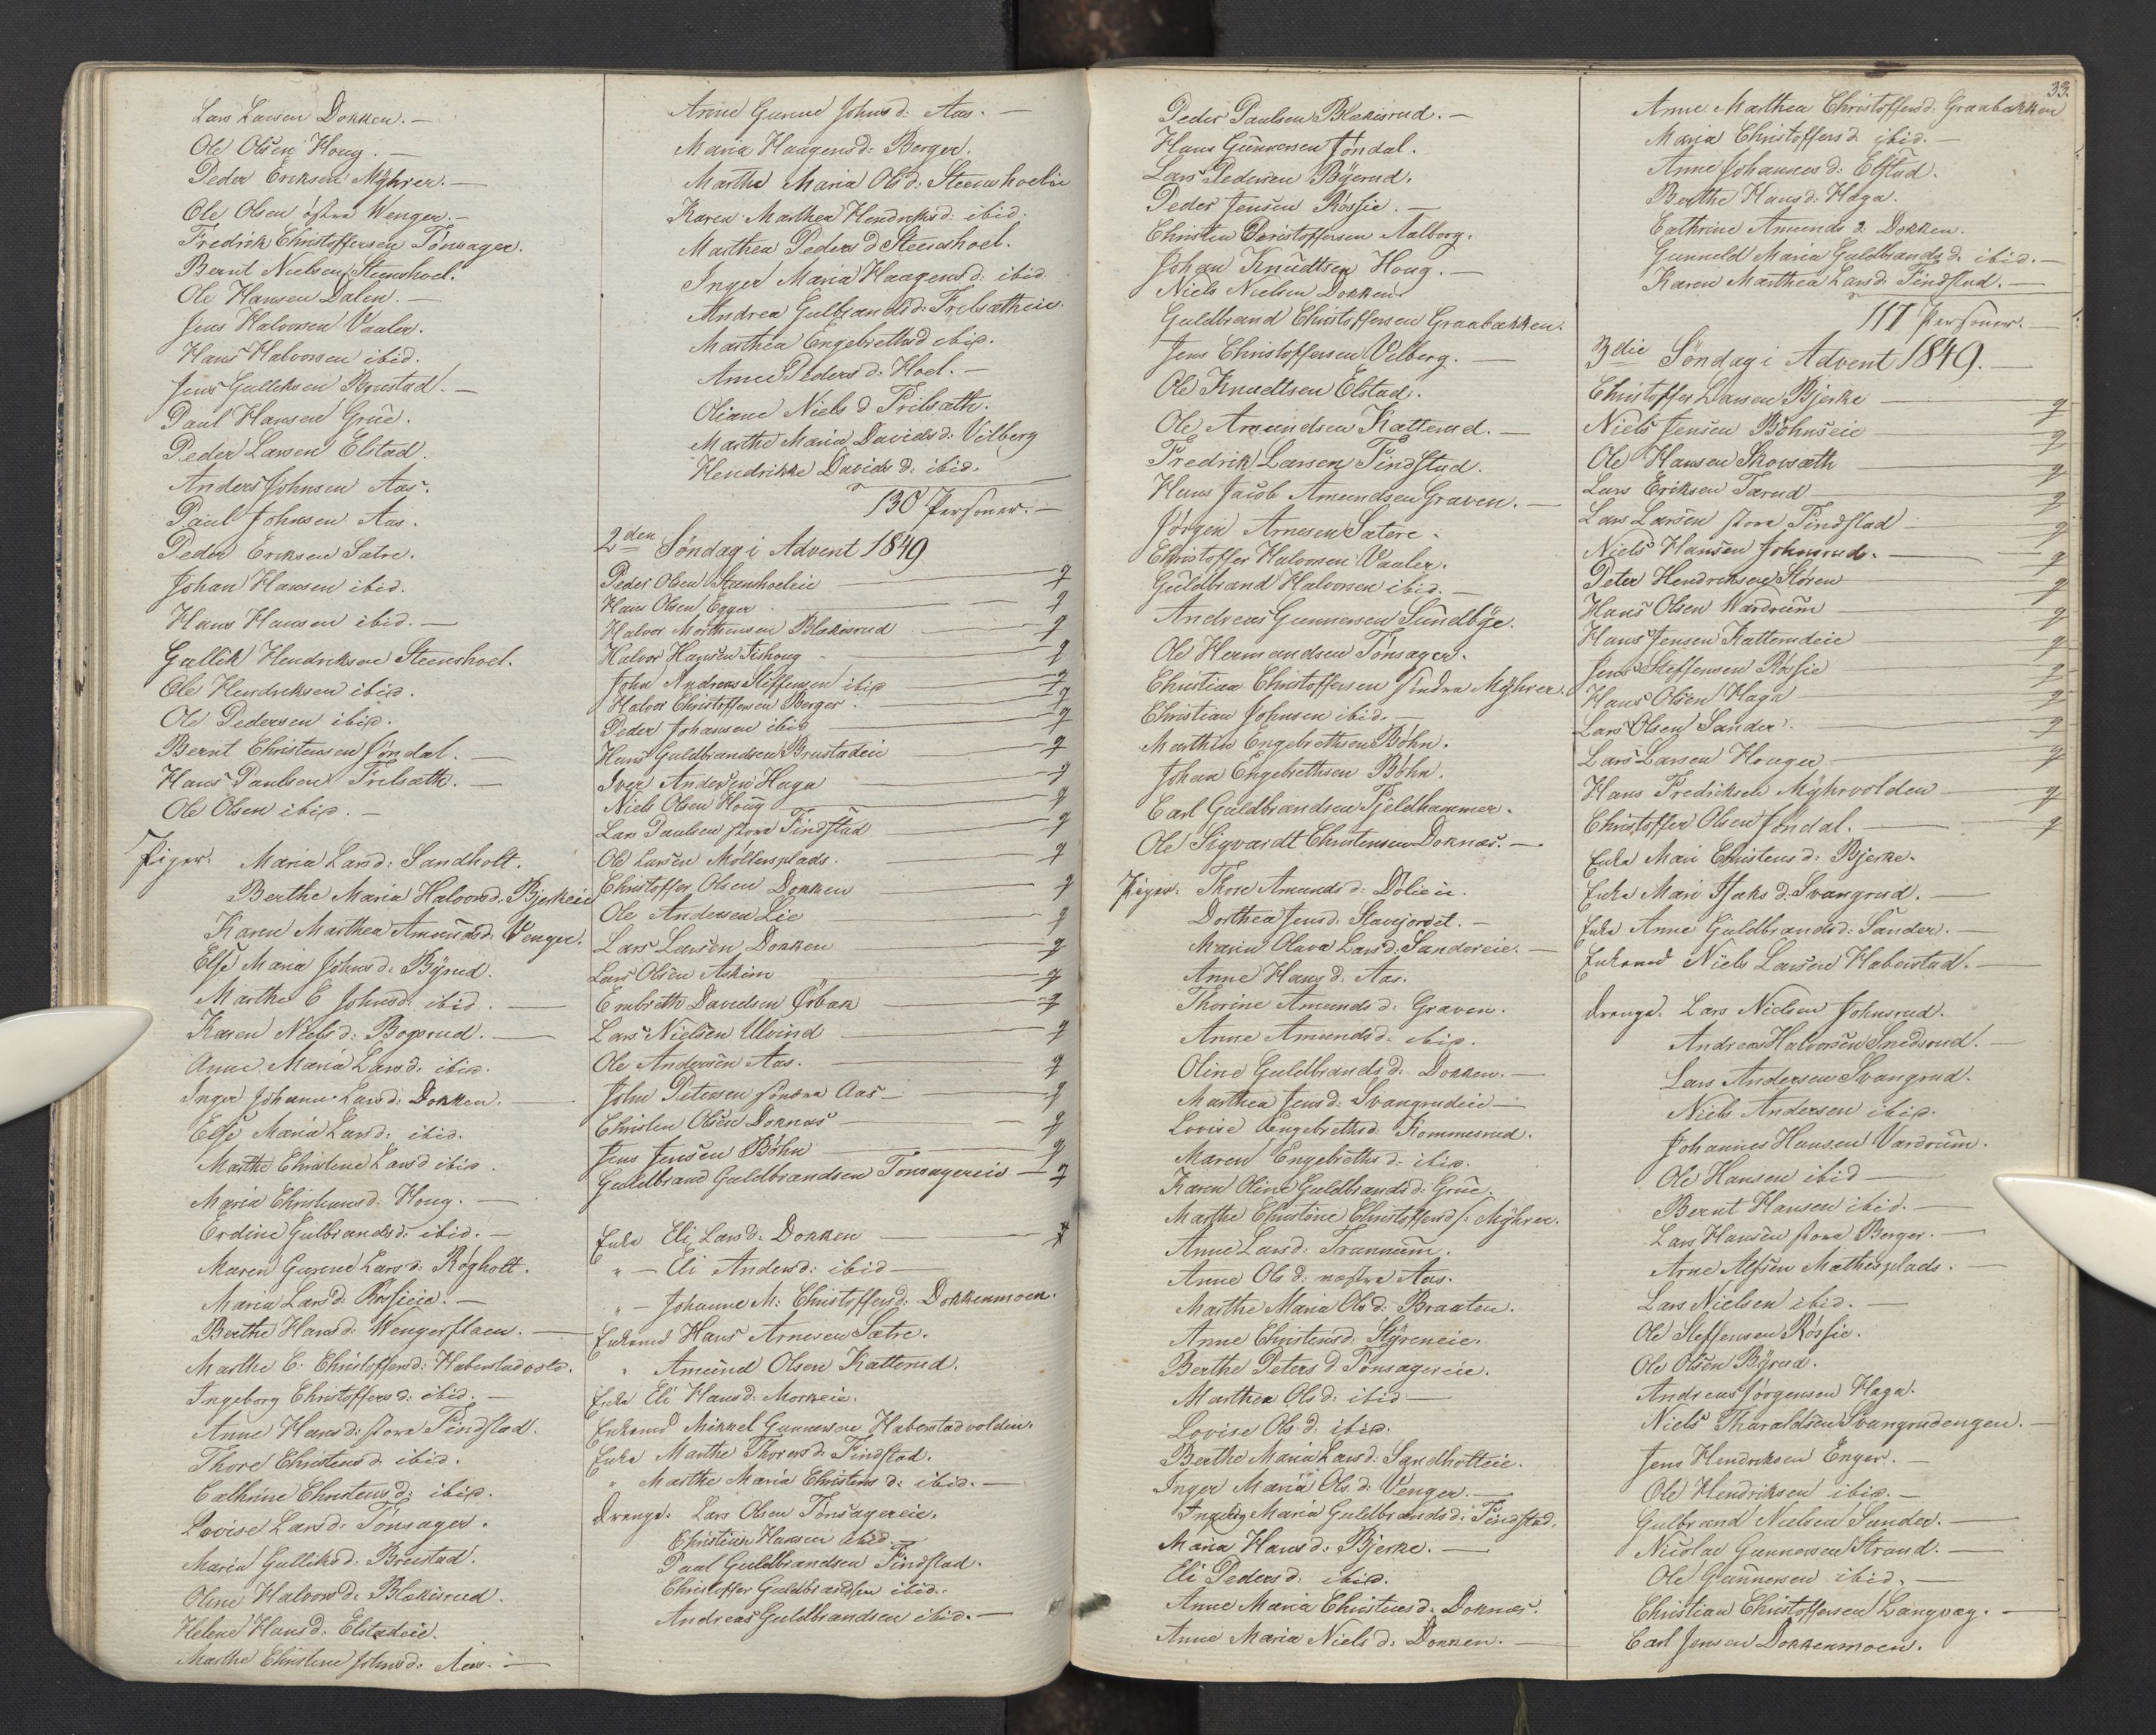 Lars Larsen Dokken. —
Ole Olsen Houg. —
Peder Eriksen Mÿhrer. —
Ole Olsen östra Wenger. —
Fredrik Christoffersen Tönsager.
Bernt Nielsen Steenshoel.
Ole Hansen Dalen. —
Jens Halvorsen Vaaler.
Hans Halvorsen ibid.
Jens Gulliksen Brustad. —
Paul Hansen Grue.
Peder Larsen Elstad.
Anders Johnsen Aas.
Paul Johnsen Aas.
Peder Eriksen Sætre.
Johan Hansen ibid.
Hans Hansen ibid. —
Gullik Hendriksen Steenshoel.
Ole Hendriksen ibid.
Ole Pedersen ibid.
Bernt Christensen Jöndal. —
Hans Paulsen Frilsæth. —
Ole Olsen ibid. —
Piger. Maria Larsd: Sandholt.
Berthe Maria Halvorsd. Bjerkeie
Karen Marthea Amundsd. Venger.
Else Maria Johnsd: Bÿrud.
Marthe E Johnsd: ibid. —
Karen Nielsd: Bogerud. —
Anne Maria Larsd. ibid.
Inger Johanne Larsd: Dokken. —
Else Maria Larsd. ibid.
Marthe Christine Larsd ibid.
Maria Christiansd: Houg. —
Erdine Gulbrandsd: ibid. —
Maren Gurine Larsd: Rögholt.
Maria Larsd: Rösieie. —
Berthe Hansd: Wengerflaen. —
Marthe C: Christoffersd: Haberstadvold.
Ingeborg Christoffersd: ibid. —
Anne Hansd: stora Findstad.
Thore Christensd. ibid.
Cathrine Christensd: ibid.
Lovise Larsd: Tönsager.
Maria Gulliksd: Brustad.
Oline Halvorsd: Blækisrud.
Helene Hansd: Elstadeie.
Marthe Christine Johnsd: Aas. —
Anne Gunne Johnsd: Aas. —
Maria Haagensd: Berger.
Marthe Maria Olsd: Steenshoeleie
Karen Marthea Hendriksd: ibid.
Marthea Pedersd Steenshoel.
Inger Maria Haagensd: ibid.
Andrea Gulbrandsd: Frilsætheie.
Marthea Engebrethsd ibid.
Anne Pedersd. Hoel. —
Oliane Nielsd Frilsæth.
Marthe Maria Davidsd: Vilberg
Hendrikke Davidsd: ibid.
130 Personer. —
2den Söndag i Advent 1849
Peder Olsen Steenshoeleie — q
Hans Olsen Egger — q
Halvor Morthensen Blækisrud — q
Halvor Hansen Fishoug — q
John Andreas Steffensen ibid — q
Halvor Christoffersen Berger. — q
Peder Johansen ibid — q
Hans Guldbrandsen Brustadeie — q
Iver Andersen Haga — q
Niels Olsen Houg — q
Lars Paulsen stora Findstad — q
Ole Larsen Möllersplads. — q
Christoffer Olsen Dokken — q
Ole Andersen Lie — q
Lars Larsen Dokken — q
Lars Olsen Askim — q
Embreth Davidsen Örbak — q
Lars Nielsen Ulvind — q
Ole Andersen Aas. — q
John Petersen söndra Aas — q
Christen Olsen Doknæs — q
Jens Jensen Böhn — q
Guldbrand Guldbrandsen Tönsagereie — q
Enke Eli Larsd: Dokken —
" — Eli Andersd: ibid —
" — Johanne M: Christoffersd: Dokkenmoen.
Enkemd Hans Arnesen Sætre.
" Amund Olsen Katterud.
Enke Eli Hansd: Morkeie.
Enkemd Mikkel Gunnersen Haberstadvolden.
Enke Marthe Thoresd: Findstad.
" Marthe Maria Christensd: ibid. —
Drenge. Lars Olsen Tönsagereie.
Christian Hansen ibid.
Paal Guldbrandsen Findstad.
Christoffer Guldbrandsen ibid.
Andreas Guldbrandsen ibid. —
Peder Paulsen Blækisrud. —
Hans Gunnersen Jöndal.
Lars Pedersen Bÿerud.
Peder Jensen Rösie. —
Christen Christoffersen Aalborg.
Johan Knudtsen Houg. —
Niels Nielsen Dokken.
Guldbrand Christoffersen Graabakken.
Jens Christoffersen Vilberg. —
Ole Knudtsen Elstad.
Ole Amundsen Katterud. —
Fredrik Larsen Findstad.
Hans Jacob Amundsen Graven. —
Jörgen Arnesen Satere.
Christoffer Halvorsen Vaaler.
Guldbrand Halvorsen ibid. —
Andreas Gunnersen Sundbÿe.
Ole Hermandsen Tönsager.
Christian Christoffersen söndra Mÿhrer.
Christian Johnsen ibid. —
Marthin Engebrethsen Böhn.
Johan Engebrethsen Böhn.
Carl Guldbrandsen Fjeldhammer.
Ole Sigvardt Christensen Doknæs. —
Piger. Thore Amundsd: Dölieie.
Dorthea Jensd. Stavjordet. —
Maria Olava Larsd: Sandereie. —
Anne Hansd. Aas.
Thorine Amundsd: Graven.
Anne Amundsd: ibid.
Oline Guldbrandsd: Dokken. —
Marthea Jensd: Svangrudeie —
Lovise Engebrethsd: Kommerud.
Maren Engebrethsd: ibid.
Karen Oline Guldbrandsd: Grue.
Marthe Christine Christoffersd s: Mÿhrer.
Anne Larsd: Trannum.
Anne Olsd: nestra Aas.
Marthe Maria Olsd: Braaten.
Anne Christensd: Stÿreneie.
Berthe Petersd Tönsagereie.
Marthea Olsd: ibid —
Lovise Olsd: ibid.
Berthe Maria Larsd: Sandholteie.
Inger Maria Olsd: Venger. —
Ingebg Maria Guldbrandsd: Findstad.
Maria Hansd: Bjerke. —
Eli Pedersd: ibid.
Anne Maria Christensd: Doknæs.
Anne Maria Nielsd: Dokken. —
33.
Anne Marthea Christoffersd: Graabakken
Maria Christoffersd ibid. —
Anne Johannesd: Elstad.
Berthe Hansd: Haga.
Cathrine Amundsd: Dokken.
Gunneld Maria Guldbrandsd: ibid. —
Karen Marthea Larsd: Findstad. —
117 Personer. —
3die Söndag i Advent 1849. —
Christoffer Larsen Bjerke — q
Niels Jensen Böhnseie — q
Ole Hansen Skovsæth — q
Lars Eriksen Tærud — q
Lars Larsen stora Findstad — q
Niels Hansen Johnsrud. — q
Peter Hendriksen Stören — q
Hans Olsen Wardrum — q
Hans Jensen Katterudeie — q
Jens Steffensen Rösie — q
Hans Olsen Haga — q
Lars Olsen Sander. — q
Lars Larsen Houger — q
Hans Fredriksen Mÿhrvolden — q
Christoffer Olsen Jöndal. — q
Enke Mari Christensd: Bjerke.
Enke Mari Isaksd: Svangrud. —
Enke Anne Guldbrandsd: Sander. —
Enkemd Niels Larsen Haberstad. —
Drenge. Lars Nielsen Johnsrud.
Andreas Halvorsen Smedsrud. —
Lars Andersen Svangrud.
Niels Andersen ibid.
Johannes Hansen Vardrum.
Ole Hansen ibid —
Bernt Hansen ibid. —
Lars Hansen stora Berger. —
Arne Alfsen Mathesplads. —
Lars Nielsen ibid. —
Ole Steffensen Rösie.
Ole Olsen Bÿrud.
Andreas Jörgensen Haga.
Niels Tharaldsen Svangrudengen. —
Jens Hendriksen Enger. —
Ole Hendriksen ibid. —
Gulbrand Nielsen Sander. —
Nicolai Gunnersen Strand. —
Ole Gunnersen ibid. —
Christian Christoffersen Langvæg. —
Carl Jensen Dokkenmoen.